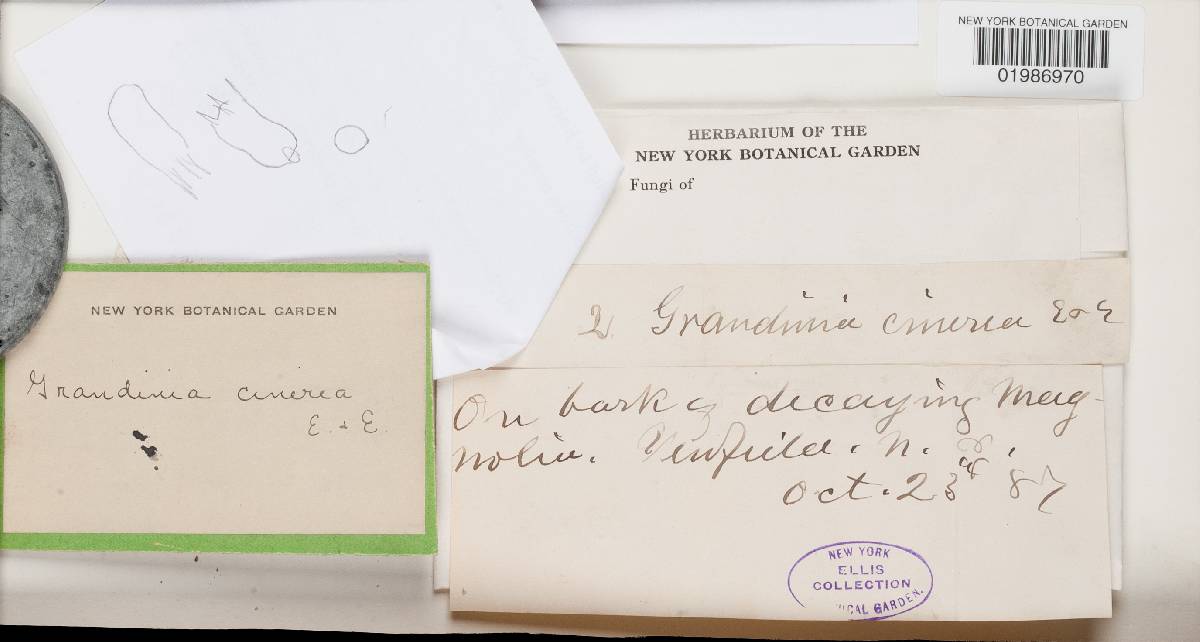 NEW YORK BOTANICAL GARDEN
01986970
HERBARIUM OF THE
NEW YORK BOTANICAL GARDEN
Fungi of
2. Grandinia cinerea E & E
On bark of decaying Mag-
nolia. Newfield. N. J.
Oct. 23rd 87
NEW YORK
ELLIS
COLLECTION
ICAL GARDEN.
NEW YORK BOTANICAL GARDEN
Grandinia cinerea
E. & E.